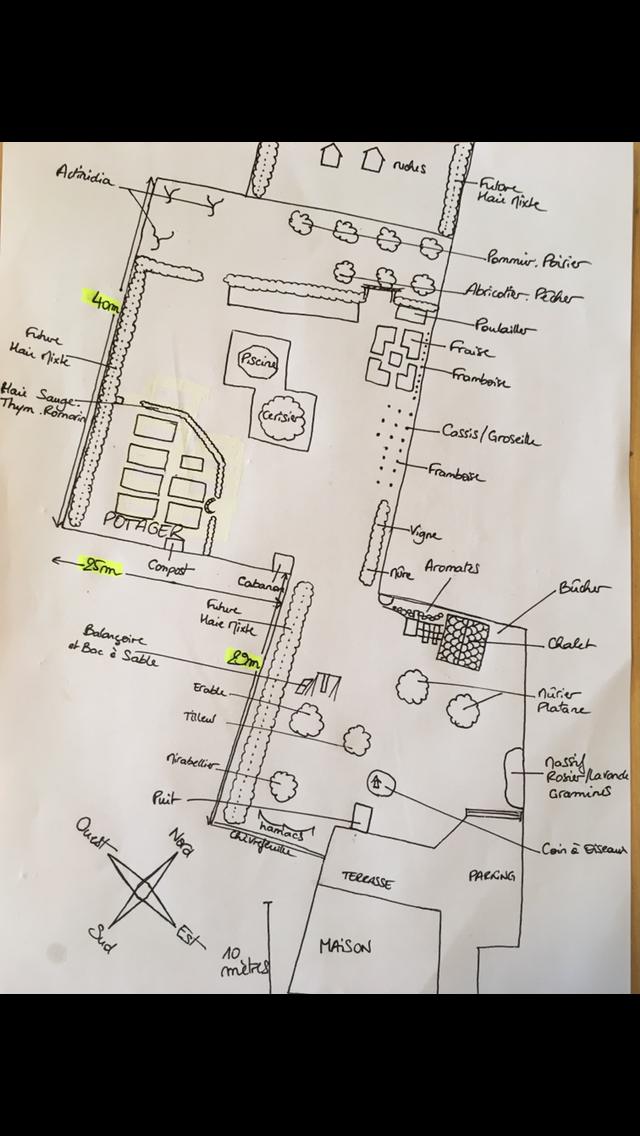 ruches
Actinidia
Future
Haie Mixte
Pommier. Poirier
40m
Abricotier. Pêcher
Poulailler
Fraise
Future
Haie Mixte
Piscine
Framboise
Haie Sauge.
Thym. Romarin
Cerisier
Cassis/Groseille
Framboise
POTAGER
Vigne
Compost
25m
Cabanon
Mûre
Aromates
Bûcher
Future
Haie Mixte
Chalet
Balançoire
et Bac à Sable
29m
Erable
Mûrier
Platane
Tilleul
Mirabellier
Massif
Rosier/Lavande
Gramines
Puit
hamacs
Chèvrefeuille
Coin à Oiseaux
Ouest
Nord
Sud
Est
TERRASSE
PARKING
10
mètres
MAISON